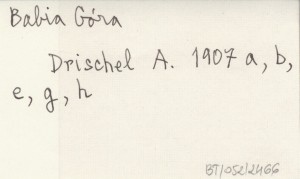 Babia Góra
Drischel A. 1907 a, b,
e, g, h
BT/052/2466